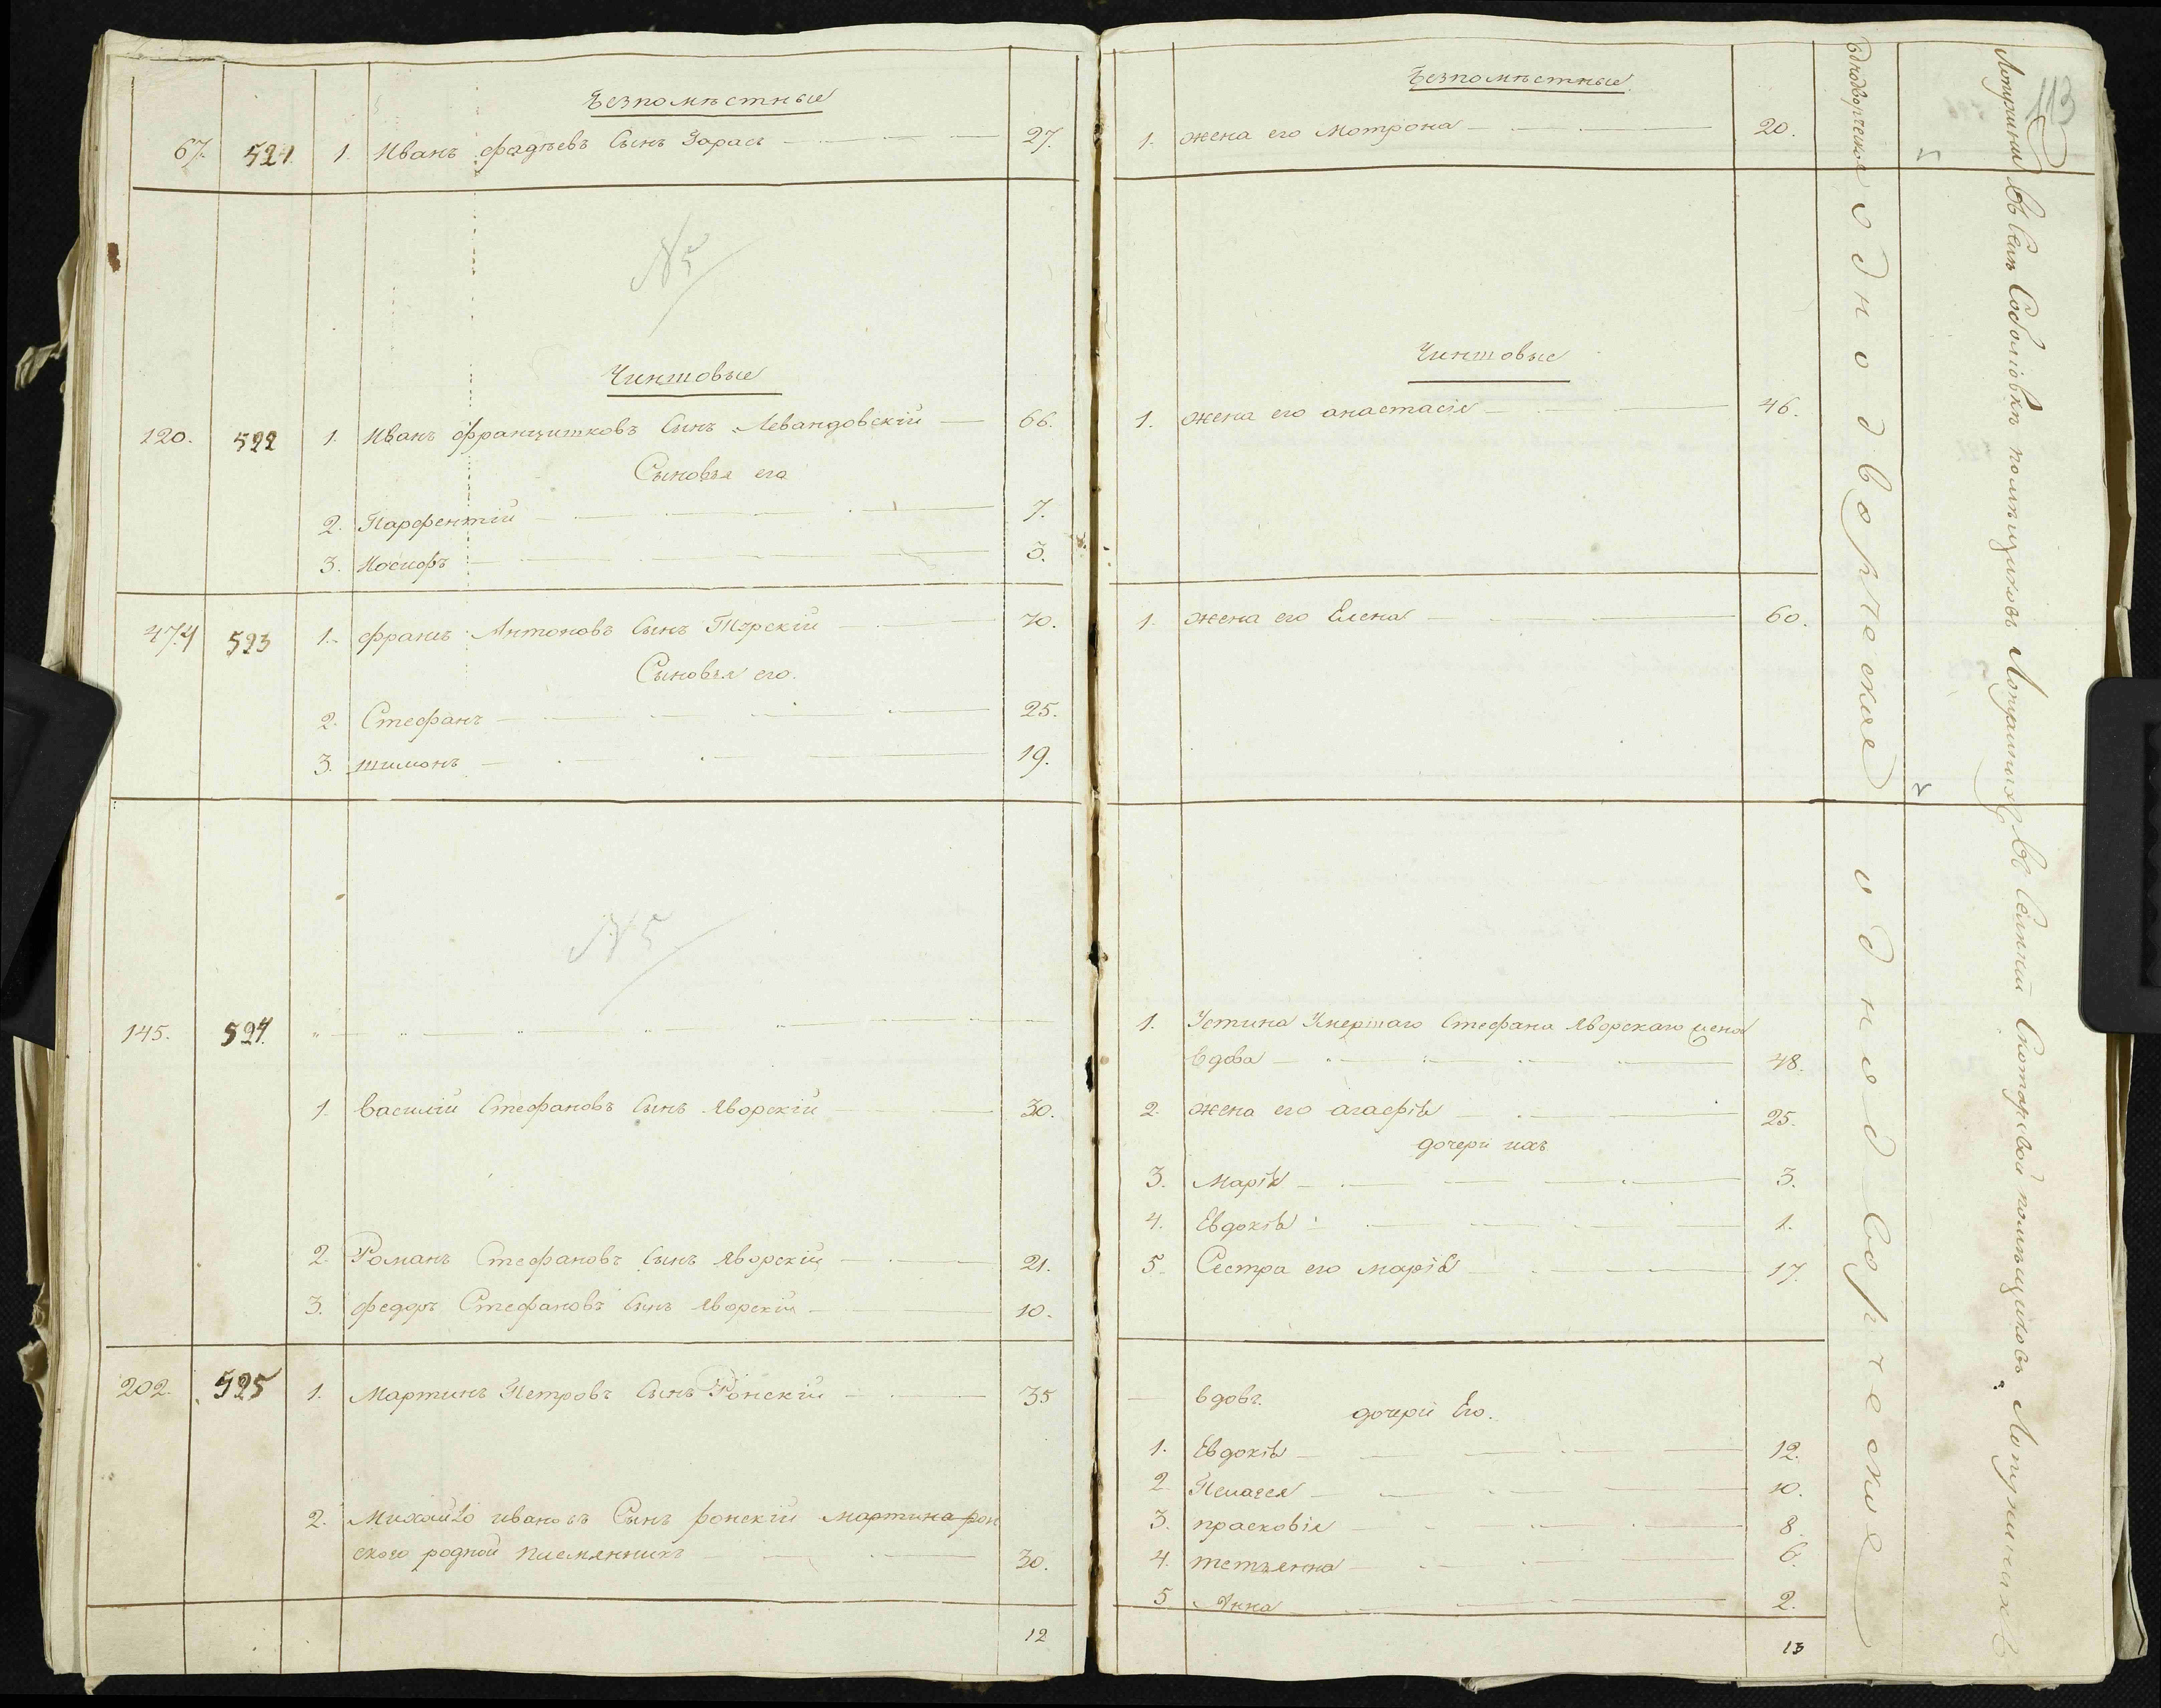 Безпомѣстные
67. 521. 1. Иванъ фадѣевъ Сынъ Гарась 27.
№ 5
Чиншовые
120. 522 1. Иванъ францишковъ Сынъ Левандовскій 66.
Сыновья его
2. Парфентій 7.
3. Иосифъ 3.
474 523 1. францъ Антоновъ Сынъ Тэрскій 70.
Сыновья его.
2. Стефанъ 25.
3. шимонъ 19.
№ 5
145. 524.
1. Василій Стефановъ Сынъ Яворскій 30.
2. Романъ Стефановъ Сынъ Яворскій 21.
3. федоръ Стефановъ Сынъ Яворскій 10.
202. 525 1. Мартинъ Петровъ Сынъ Ронскій 35
2. Михайло ивановъ Сынъ ронскій мартина рон
ского родной племянникъ 30.
12
113
Безпомѣстные
1. жена его Мотрона 20.
Чиншовые
1. жена его анастасія 46.
1. жена его Елена 60.
1. Устина Умершаго Стефана Яворскаго жена
вдова 48.
2. жена его агафія 25.
дочери ихъ
3. Марія 3.
4. Евдокія 1.
5. Сестра его марія 17.
вдовъ.
дочери Его.
1. Евдокія 12.
2. Пелагея 10.
3. прасковія 8.
4. тетьянна 6.
5 Анна 2.
13
однодворческое
однодворческое
однодворческое
Лопушни
въ Селѣ Соболіовкѣ помѣщиковъ Лопушнихъ
въ Селѣ помѣщиковъ Лопушнихъ